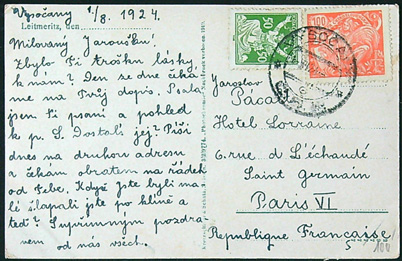 Vysočany 1/8. 1924.
Leitmeritz, den
Milovaný Jaroušku!
Zbylo Ti trošku lásky
k nám? Den ze dne čeká
me na Tvůj dopis. Poslal
jsem Ti psaní a pohled
k p. S. Dostals jej? Píši
dnes na druhou adresu
a čekám obratem na řádek
od Tebe. Když jste byli ma
lé šlapali jste po hlíně a
teď? S upřímným pozdra
vem od nás všech.
50
50
100
VYSOČA
Jaroslav
Pacák
Hotel Lorraine
6. rue d L'échaudé
Saint Germain
Paris VI
Republique Française
100